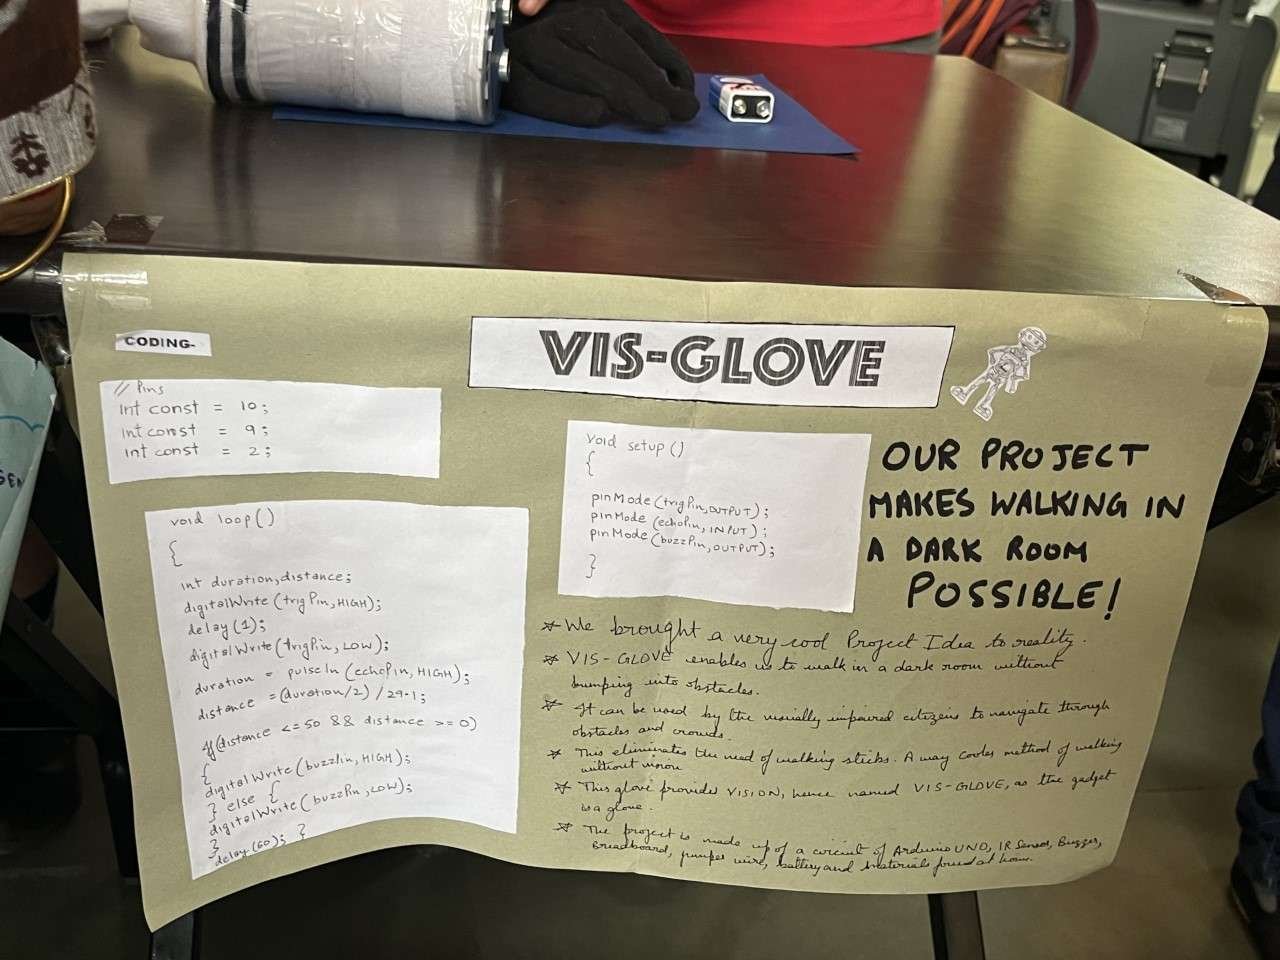 CODING-
VIS-GLOVE
// Pins
int const = 10;
int const = 9;
int const = 2;
void loop()
{
int duration,distance;
digitalWrite(trigPin,HIGH);
delay(1);
digitalWrite(trigPin, LOW);
duration = pulseIn (echoPin, HIGH);
distance = (duration/2) /29.1;
if(distance <=50 && distance >=0)
{
digitalWrite(buzzPin,HIGH);
} else {
digitalWrite(buzzPin,LOW);
}
delay(60); }
void setup()
{
pinMode(trigPin,OUTPUT);
pinMode(echoPin, INPUT);
pinMode(buzzPin,OUTPUT);
}
OUR PROJECT
MAKES WALKING IN
A DARK ROOM
POSSIBLE!
We brought a very cool Project Idea to reality.
VIS-GLOVE enables us to walk in a dark room without
bumping into obstacles.
It can be used by the visually impaired citizens to navigate through
obstacles and crowds.
This eliminates the need of walking sticks. A way cooler method of walking
without vision
This glove provides VISION, hence named VIS-GLOVE, as the gadget
is a glove.
The project is made up of a circuit of Arduino UNO, IR Sensor, Buzzer,
Breadboard, jumper wire, battery and materials found at home.